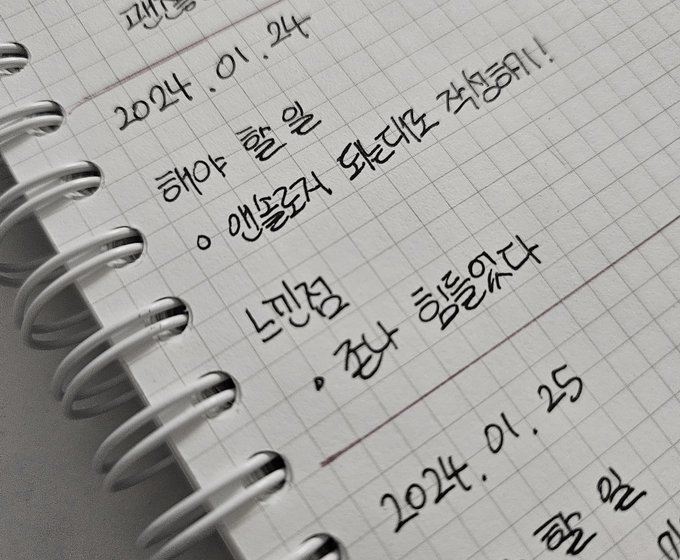 2024.01.24
해야 할 일
• 앤솔로지 되는대로 작성하기!
느낀점
• 존나 힘들었다
2024.01.25
할 일